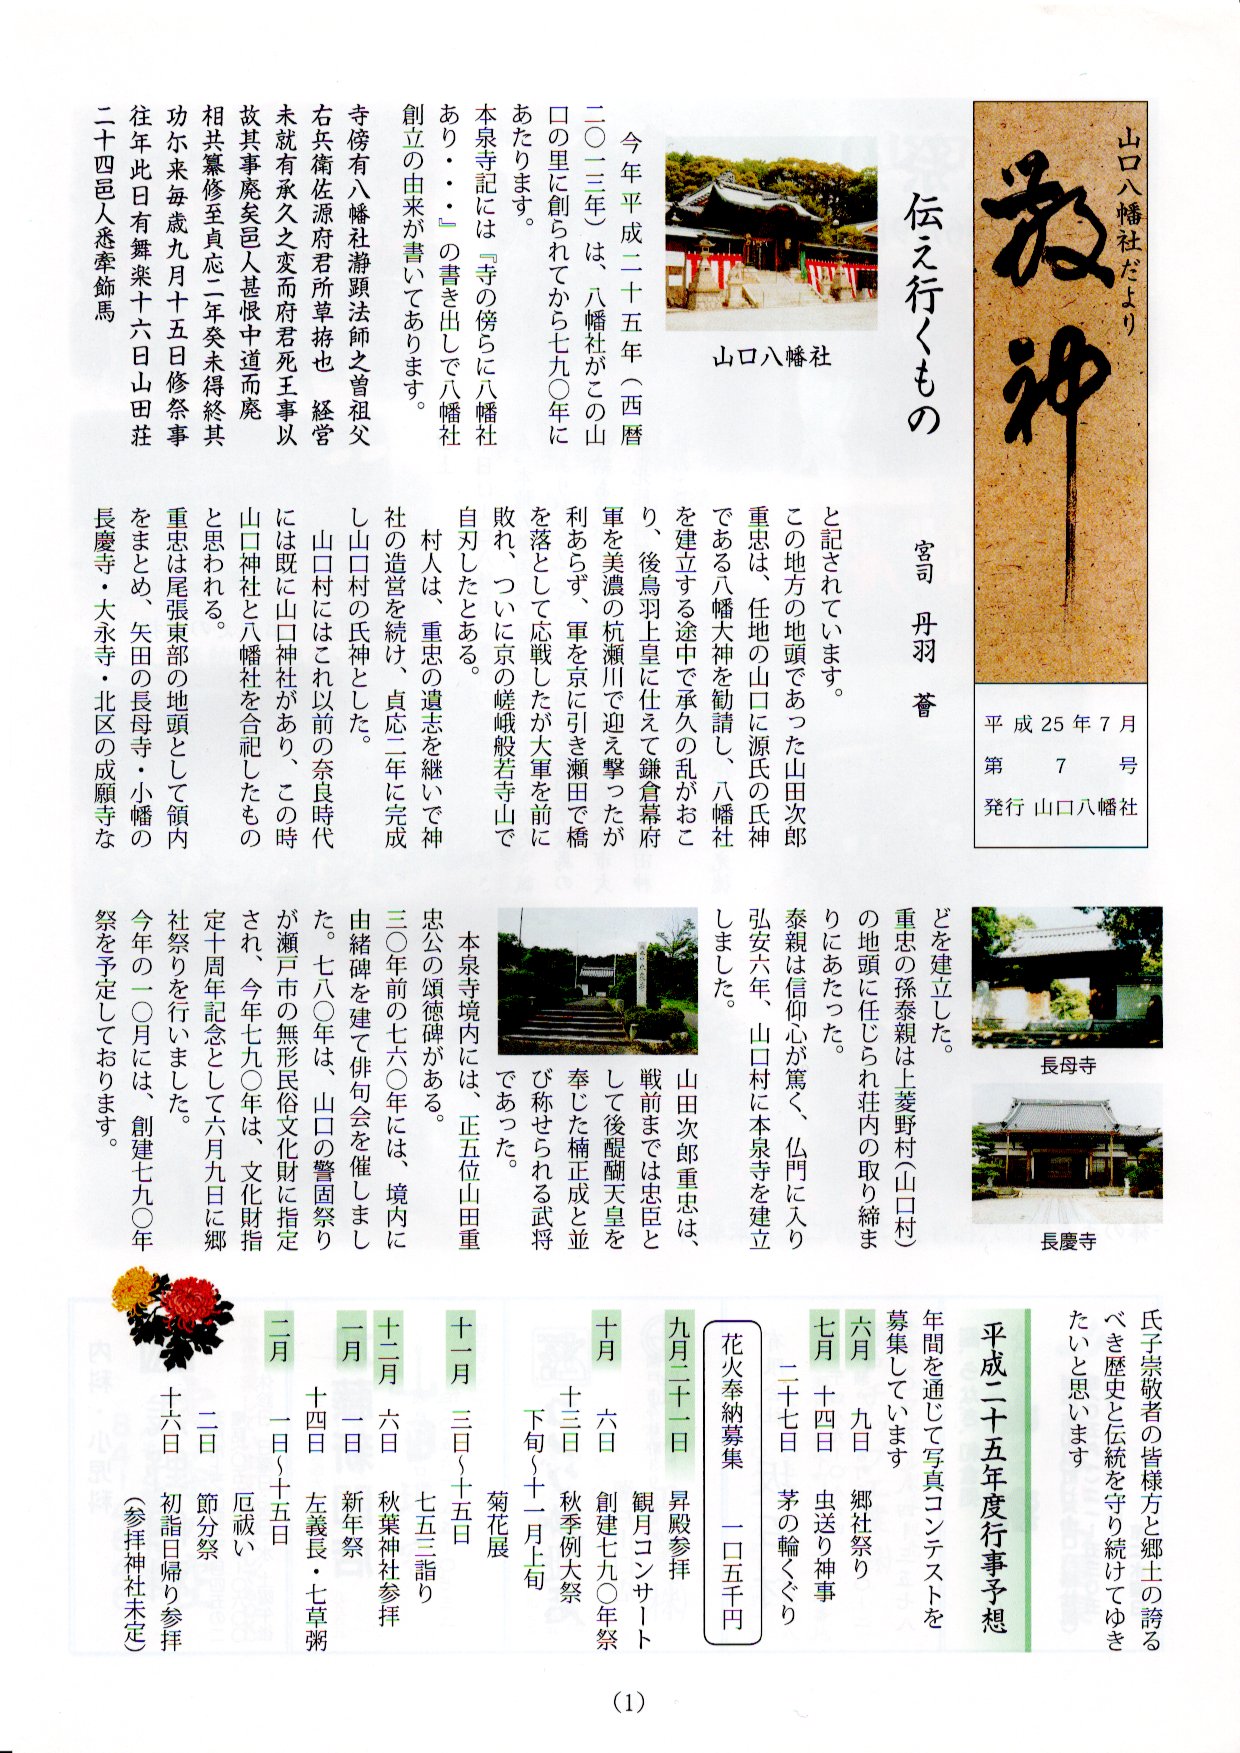 山口八幡社だより
敬神
平成25年7月
第7号
発行 山口八幡社
伝え行くもの
宮司 丹羽 薈
山口八幡社
今年平成二十五年(西暦
二〇一三年)は、八幡社がこの山
口の里に創られてから七九〇年に
あたります。
本泉寺記には『寺の傍らに八幡社
あり・・・』の書き出しで八幡社
創立の由来が書いてあります。
寺傍有八幡社瀞顕法師之曽祖父
右兵衛佐源府君所草拵也 経営
未就有承久之変而府君死王事以
故其事廃矣邑人甚恨中道而廃
相共纂修至貞応二年癸未得終其
功尓来毎歳九月十五日修祭事
往年此日有舞楽十六日山田荘
二十四邑人悉牽飾馬
と記されています。
この地方の地頭であった山田次郎
重忠は、任地の山口に源氏の氏神
である八幡大神を勧請し、八幡社
を建立する途中で承久の乱がおこ
り、後鳥羽上皇に仕えて鎌倉幕府
軍を美濃の杭瀬川で迎え撃ったが
利あらず、軍を京に引き瀬田で橋
を落として応戦したが大軍を前に
敗れ、ついに京の嵯峨般若寺山で
自刃したとある。
村人は、重忠の遺志を継いで神
社の造営を続け、貞応二年に完成
し山口村の氏神とした。
山口村にはこれ以前の奈良時代
には既に山口神社があり、この時
山口神社と八幡社を合祀したもの
と思われる。
重忠は尾張東部の地頭として領内
をまとめ、矢田の長母寺・小幡の
長慶寺・大永寺・北区の成願寺な
長母寺
長慶寺
どを建立した。
重忠の孫泰親は上菱野村(山口村)
の地頭に任じられ荘内の取り締ま
りにあたった。
泰親は信仰心が篤く、仏門に入り
弘安六年、山口村に本泉寺を建立
しました。
山田次郎重忠は、
戦前までは忠臣と
して後醍醐天皇を
奉じた楠正成と並
び称せられる武将
であった。
本泉寺境内には、正五位山田重
忠公の頌徳碑がある。
三〇年前の七六〇年には、境内に
由緒碑を建て俳句会を催しまし
た。七八〇年は、山口の警固祭り
が瀬戸市の無形民俗文化財に指定
され、今年七九〇年は、文化財指
定十周年記念として六月九日に郷
社祭りを行いました。
今年の一〇月には、創建七九〇年
祭を予定しております。
氏子崇敬者の皆様方と郷土の誇る
べき歴史と伝統を守り続けてゆき
たいと思います
平成二十五年度行事予想
年間を通じて写真コンテストを
募集しています
六月 九日 郷社祭り
七月 十四日 虫送り神事
二十七日 茅の輪くぐり
花火奉納募集 一口五千円
九月二十一日 昇殿参拝
観月コンサート
十月 六日 創建七九〇年祭
十三日 秋季例大祭
下旬~十一月上旬
菊花展
十一月 三日~十五日
七五三詣り
十二月 六日 秋葉神社参拝
一月 一日 新年祭
十四日 左義長・七草粥
二月 一日~十五日
厄祓い
二日 節分祭
十六日 初詣日帰り参拝
(参拝神社未定)
(1)